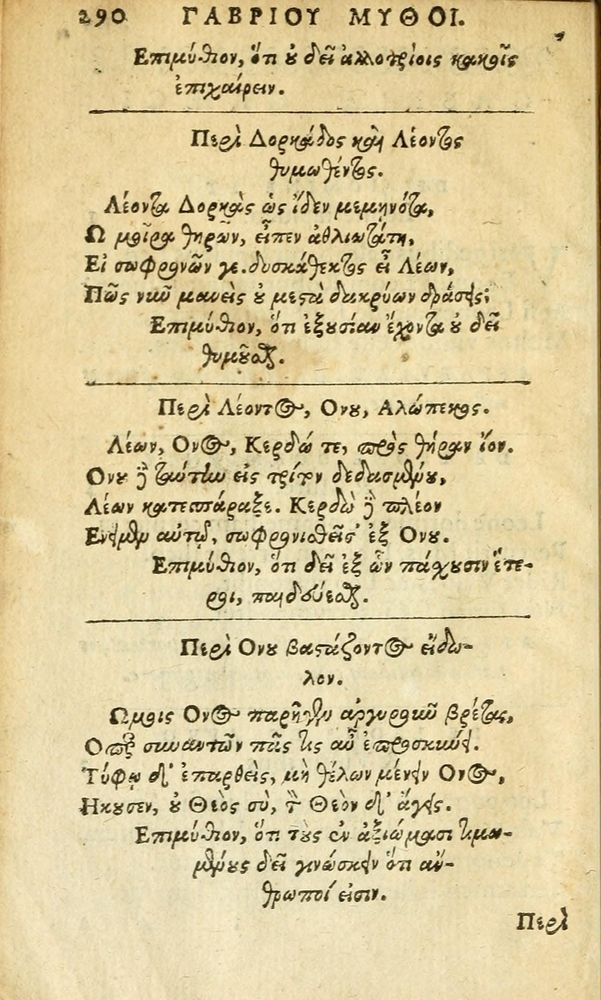 290 ΓΑΒΡΙΟΥ ΜΥΘΟΙ.
Επιμύθιον, ὅτι ȣ δεῖ ἀλλοτρίοις κακοῖς
ἐπιχαίρειν.
Περὶ Δορκάδος καὶ Λέοντος
θυμωθέντος.
Λέοντα Δορκὰς ὡς ἴδεν μεμηνότα,
Ω μοῖρα θηρῶν, εἶπεν ἀθλιωτάτη,
Εἰ σωφρονῶν γε δυσκάθεκτος εἶ Λέων,
Πῶς νῦν μανεὶς ȣ μετὰ δακρύων δράσεις;
Επιμύθιον, ὅτι ἐξȣσίαν ἔχοντα ȣ δεῖ
θυμȣσθαι.
Περὶ Λέοντος, Ονȣ, Αλώπεκος.
Λέων, Ονος, Κερδώ τε, πρὸς θήραν ἴον.
Ονȣ δὲ ταύτην εἰς τρίτον δεδασμένȣ,
Λέων κατεσπάραξε. Κερδὼ δὲ πλέον
Ενειμεν αὐτῷ, σωφρονισθεῖσ' ἐξ Ονȣ.
Επιμύθιον, ὅτι δεῖ ἐξ ὧν πάχȣσιν ἕτε-
ροι, παιδεύεσθαι.
Περὶ Ονȣ βαστάζοντος εἴδω-
λον.
Ωμοις Ονος παρῆγεν ἀργυροῦν βρέτας,
Οπερ συναντῶν πᾶς τις αὖ ἐπροσκύνει.
Τύφῳ δ' ἐπαρθεὶς, μὴ θέλων μένειν Ονος,
Ηκȣσεν, ȣ Θεὸς σὺ, τὸν Θεὸν δ' ἄγεις.
Επιμύθιον, ὅτι τȣς ἐν ἀξιώμασι τιμω-
μένȣς δεῖ γινώσκειν ὅτι ἄν-
θρωποί εἰσιν.
Περὶ